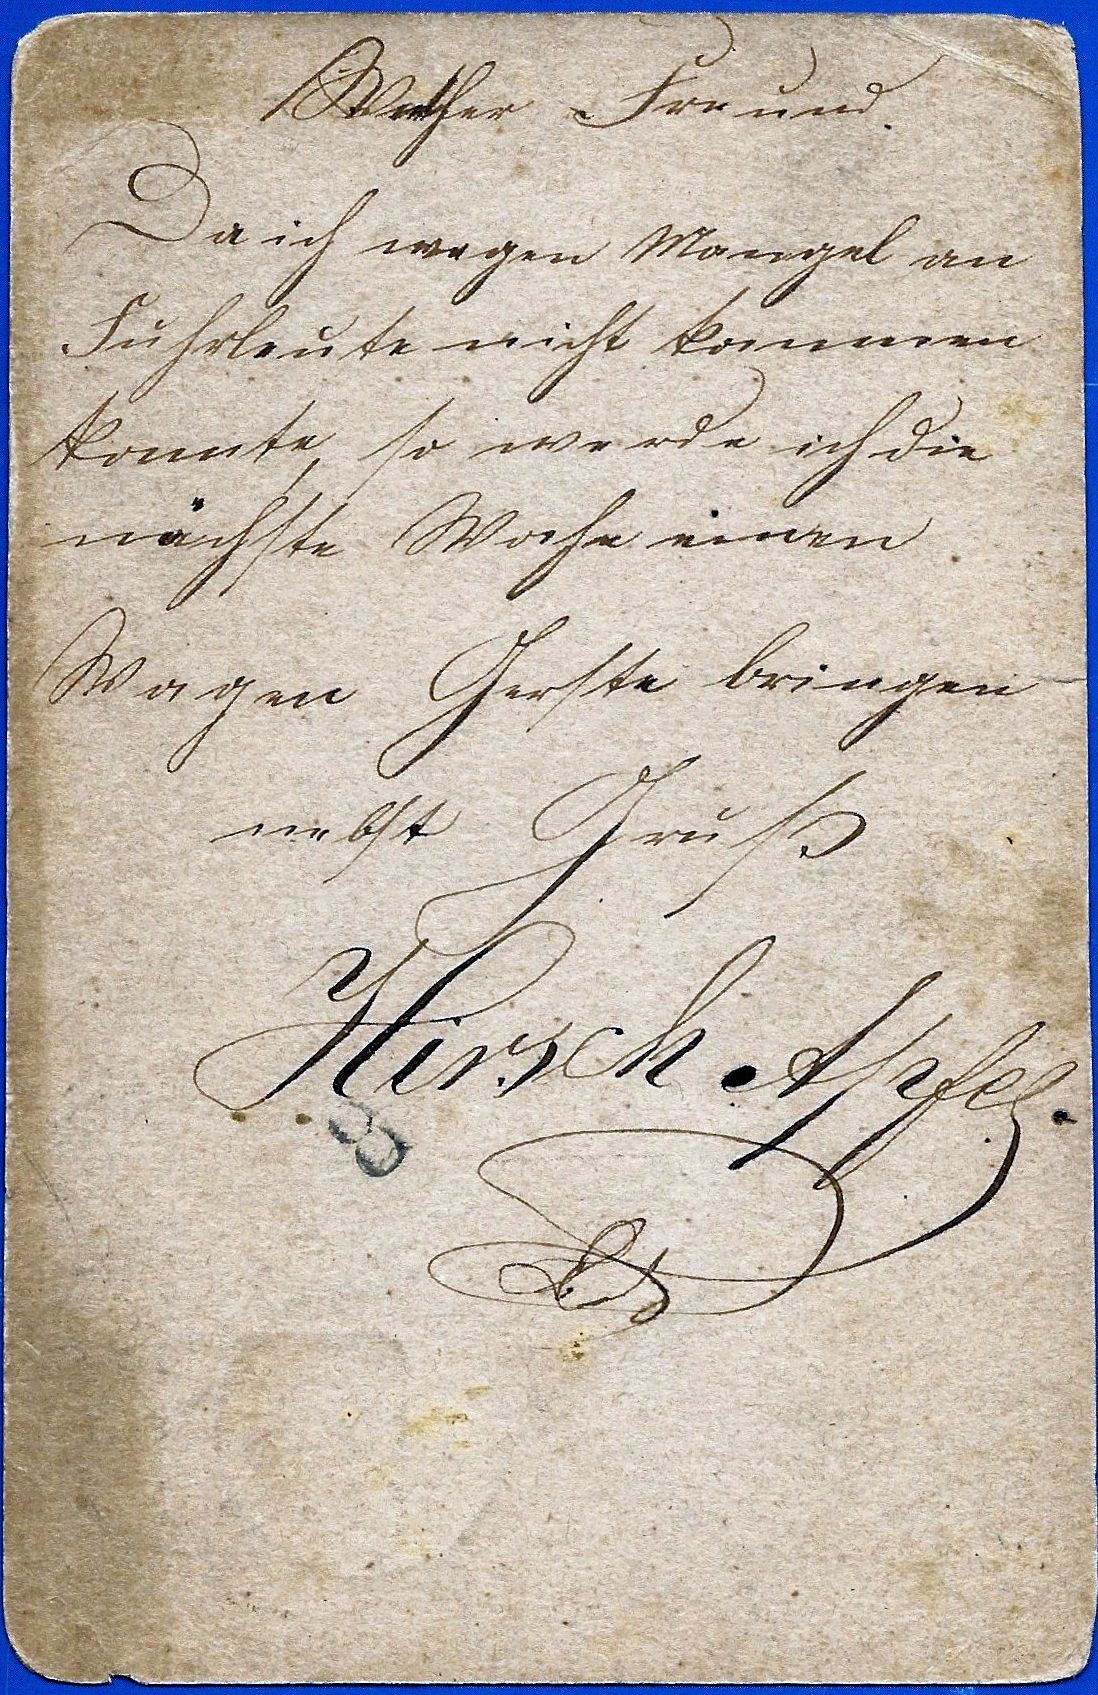 Werther Freund.
Da ich wegen Mangel an
Fuhrleute nicht kommen
konnte, so werde ich die
nächste Woche einen
Wagen Gerste bringen
nebst Gruß
Hirsch Apfel.